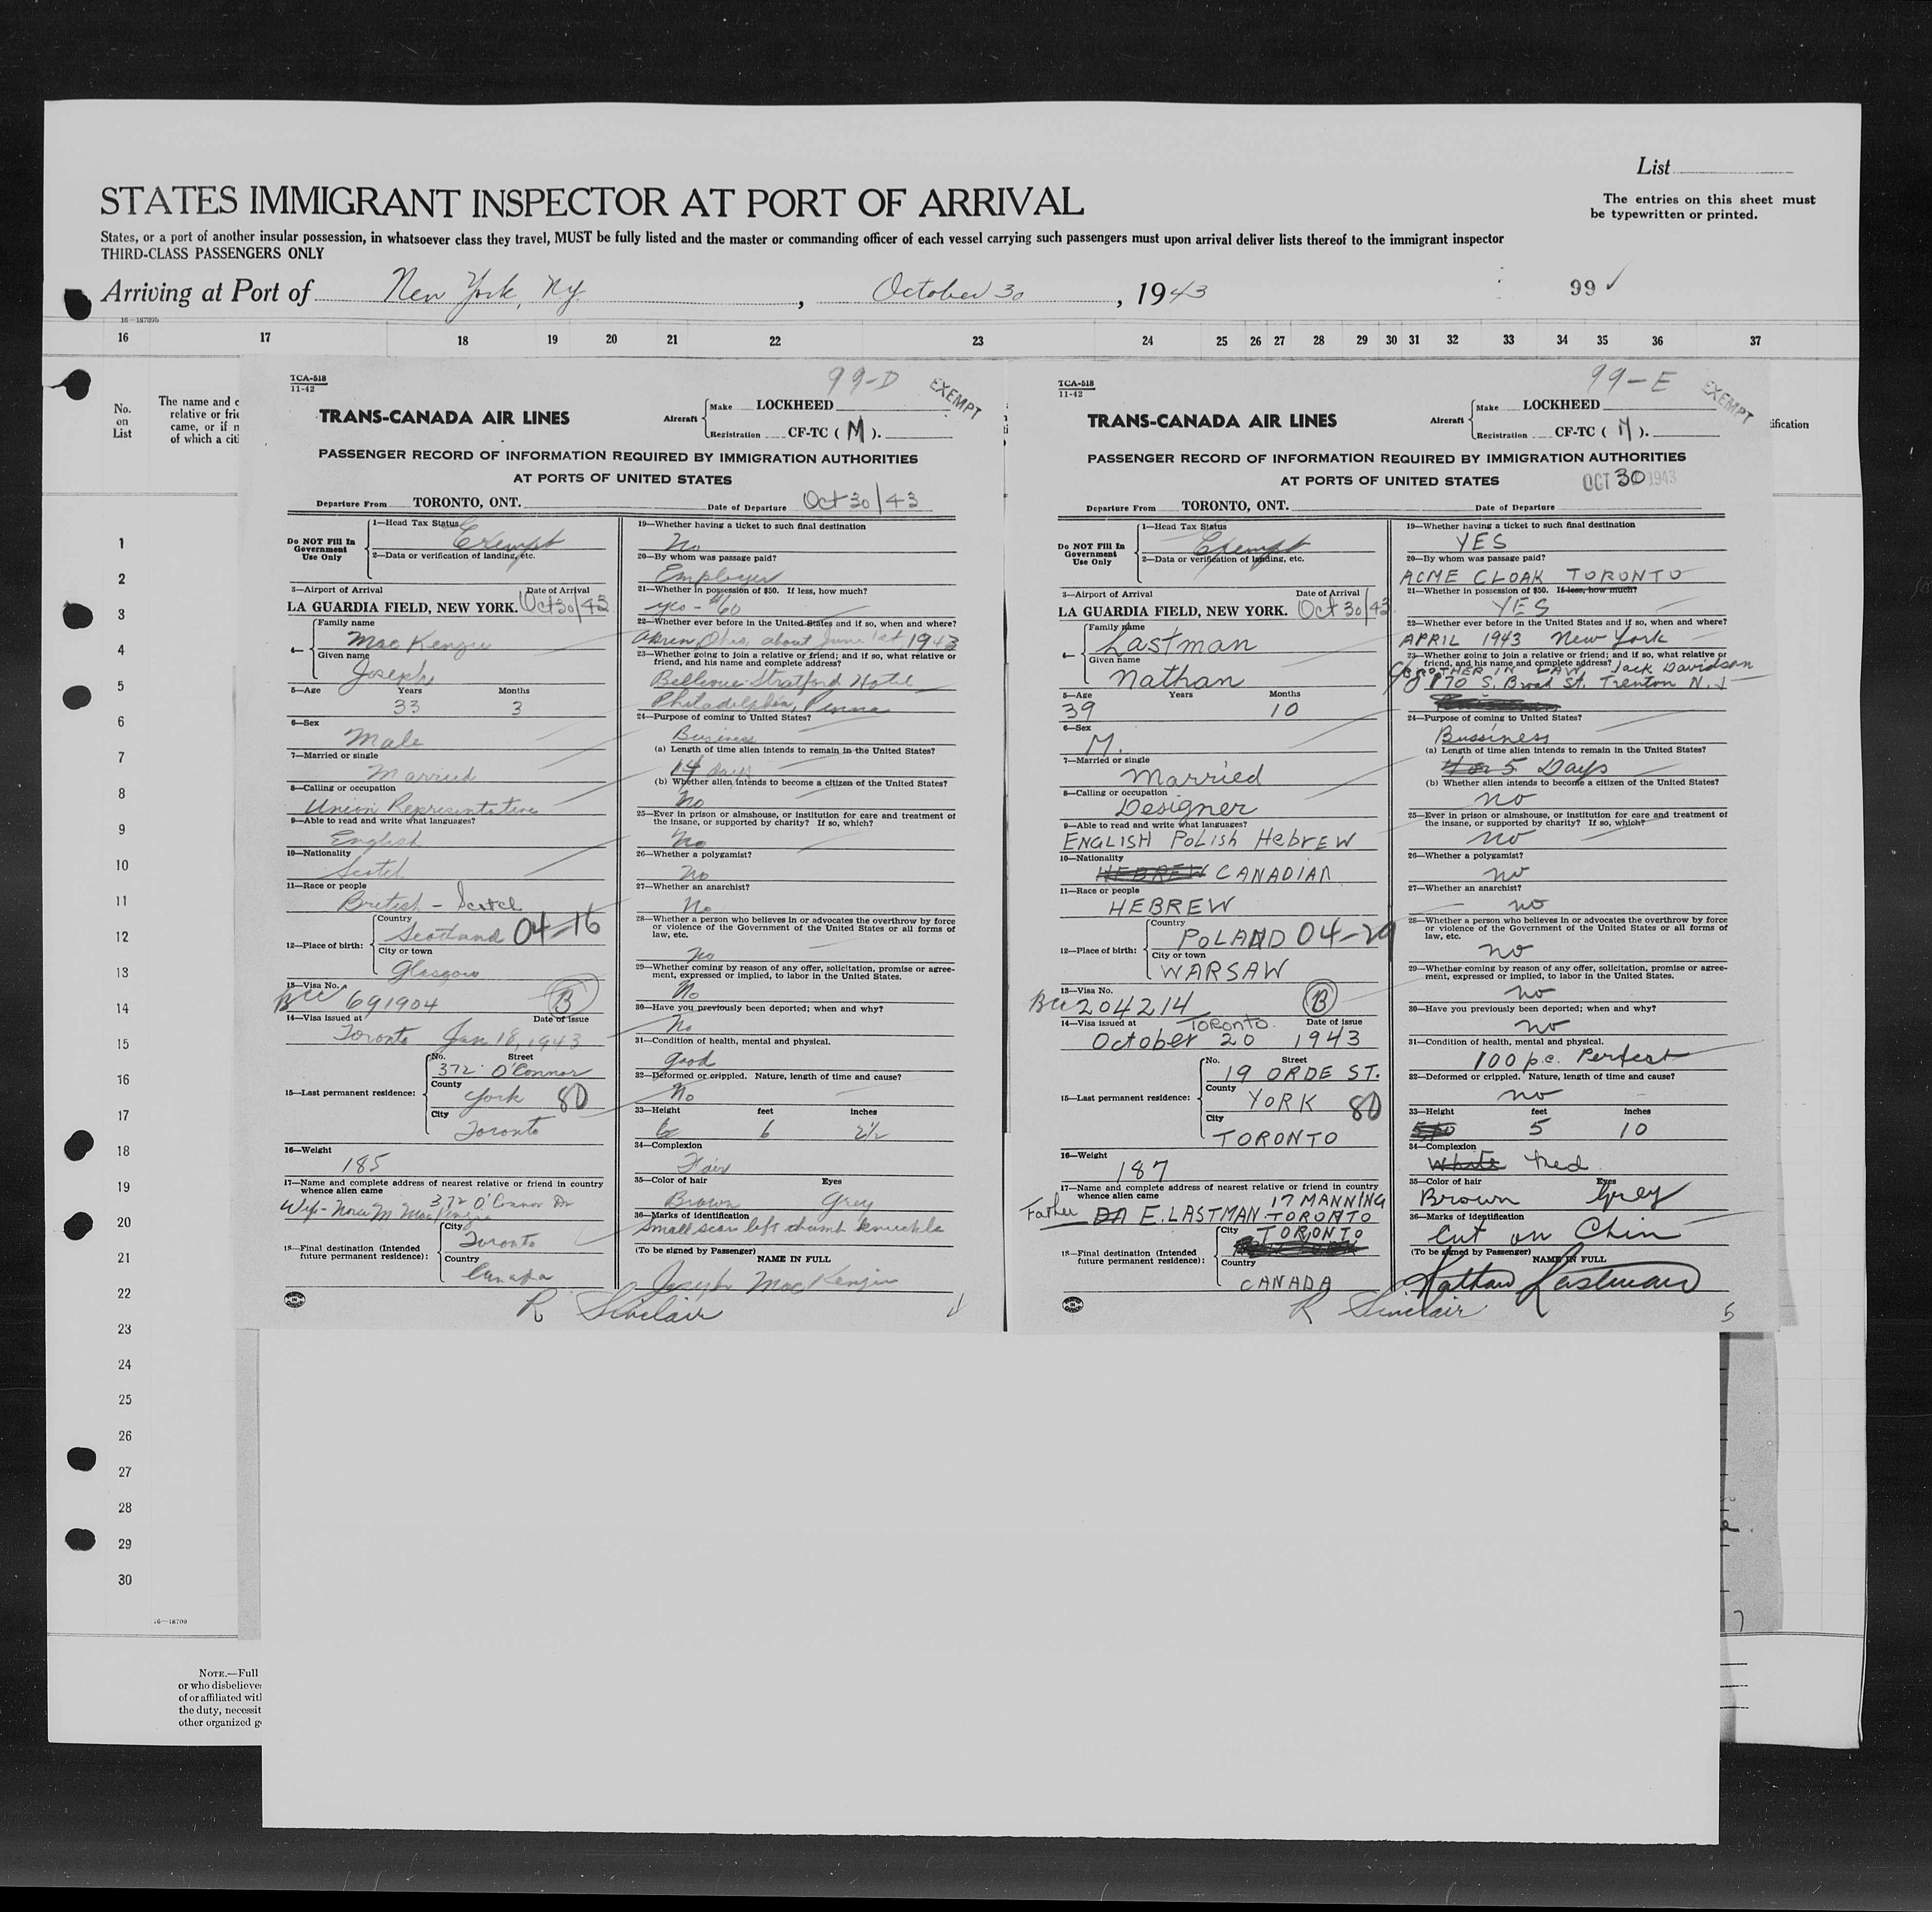 List
STATES IMMIGRANT INSPECTOR AT PORT OF ARRIVAL
The entries on this sheet must
be typewritten or printed.
States, or a port of another insular possession, in whatsoever class they travel, MUST be fully listed and the master or commanding officer of each vessel carrying such passengers must upon arrival deliver lists thereof to the immigrant inspector
THIRD-CLASS PASSENGERS ONLY
Arriving at Port of New York, NY, October 30, 1943
99
16 17 18 19 20 21 22 23 24 25 26 27 28 29 30 31 32 33 34 35 36 37
No.
on
List
The name and c
relative or frie
came, or if n
of which a citi
1
2
3
4
5
6
7
8
9
10
11
12
13
14
15
16
17
18
19
20
21
22
23
24
25
26
27
28
29
30
16—18709
NOTE.—Full
or who disbelieve
of or affiliated with
the duty, necessit
other organized g
TCA-518
11-42
99-D
EXEMPT
TRANS-CANADA AIR LINES
Aircraft
Make LOCKHEED
Registration CF-TC ( M ).
PASSENGER RECORD OF INFORMATION REQUIRED BY IMMIGRATION AUTHORITIES
AT PORTS OF UNITED STATES
Departure From TORONTO, ONT. Date of Departure Oct 30/43
Do NOT Fill In
Government
Use Only
1—Head Tax Status
Exempt
2—Data or verification of landing, etc.
3—Airport of Arrival Date of Arrival
LA GUARDIA FIELD, NEW YORK. Oct 30/43
4—
Family name
MacKenzie
Given name
Joseph
5—Age Years Months
33 3
6—Sex
Male
7—Married or single
Married
8—Calling or occupation
Union Representative
9—Able to read and write what languages?
English
10—Nationality
Scotch
11—Race or people
British - Scotch
12—Place of birth:
Country
Scotland 04-16
City or town
Glasgow
13—Visa No.
BCC 691904 B
14—Visa issued at Date of issue
Toronto Jan 18, 1943
15—Last permanent residence:
No. Street
372 O'Connor
County
York 80
City
Toronto
16—Weight
185
17—Name and complete address of nearest relative or friend in country
whence alien came
372 O'Connor Dr
Wife - Nora M. MacKenzie
18—Final destination (Intended
future permanent residence):
City
Toronto
Country
Canada
19—Whether having a ticket to such final destination
No
20—By whom was passage paid?
Employer
21—Whether in possession of $50. If less, how much?
yes - $60
22—Whether ever before in the United States and if so, when and where?
Akron, Ohio, about June 1st, 1943
23—Whether going to join a relative or friend; and if so, what relative or
friend, and his name and complete address?
Bellevue-Stratford Hotel
Philadelphia, Penna
24—Purpose of coming to United States?
Business
(a) Length of time alien intends to remain in the United States?
14 days
(b) Whether alien intends to become a citizen of the United States?
No
25—Ever in prison or almshouse, or institution for care and treatment of
the insane, or supported by charity? If so, which?
No
26—Whether a polygamist?
No
27—Whether an anarchist?
No
28—Whether a person who believes in or advocates the overthrow by force
or violence of the Government of the United States or all forms of
law, etc.
No
29—Whether coming by reason of any offer, solicitation, promise or agree-
ment, expressed or implied, to labor in the United States.
No
30—Have you previously been deported; when and why?
No
31—Condition of health, mental and physical.
Good
32—Deformed or crippled. Nature, length of time and cause?
No
33—Height feet inches
6 2½
34—Complexion
Fair
35—Color of hair Eyes
Brown Grey
36—Marks of identification
Small scar left thumb knuckle
(To be signed by Passenger) NAME IN FULL
Joseph MacKenzie
R Sinclair
TCA-518
11-42
99-E
EXEMPT
TRANS-CANADA AIR LINES
Aircraft
Make LOCKHEED
Registration CF-TC ( M ).
PASSENGER RECORD OF INFORMATION REQUIRED BY IMMIGRATION AUTHORITIES
AT PORTS OF UNITED STATES
OCT 30 1943
Departure From TORONTO, ONT. Date of Departure
Do NOT Fill In
Government
Use Only
1—Head Tax Status
Exempt
2—Data or verification of landing, etc.
3—Airport of Arrival Date of Arrival
LA GUARDIA FIELD, NEW YORK. Oct 30/43
4—
Family name
Lastman
Given name
Nathan
5—Age Years Months
39 10
6—Sex
M.
7—Married or single
Married
8—Calling or occupation
Designer
9—Able to read and write what languages?
ENGLISH POLISH HEBREW
10—Nationality
HEBREW CANADIAN
11—Race or people
HEBREW
12—Place of birth:
Country
POLAND 04-29
City or town
WARSAW
13—Visa No.
BCC 204214 B
14—Visa issued at TORONTO Date of issue
October 20 1943
15—Last permanent residence:
No. Street
19 ORDE ST.
County
YORK 80
City
TORONTO
16—Weight
187
17—Name and complete address of nearest relative or friend in country
whence alien came
17 MANNING
Father E. LASTMAN TORONTO
18—Final destination (Intended
future permanent residence):
City
TORONTO
Country
CANADA
19—Whether having a ticket to such final destination
YES
20—By whom was passage paid?
ACME CLOAK TORONTO
21—Whether in possession of $50. If less, how much?
YES
22—Whether ever before in the United States and if so, when and where?
APRIL 1943 New York
23—Whether going to join a relative or friend; and if so, what relative or
friend, and his name and complete address?
BROTHER IN LAW Jack Davidson
S. Broad St. Trenton N.J.
24—Purpose of coming to United States?
Bussiness
(a) Length of time alien intends to remain in the United States?
4 or 5 Days
(b) Whether alien intends to become a citizen of the United States?
no
25—Ever in prison or almshouse, or institution for care and treatment of
the insane, or supported by charity? If so, which?
no
26—Whether a polygamist?
no
27—Whether an anarchist?
no
28—Whether a person who believes in or advocates the overthrow by force
or violence of the Government of the United States or all forms of
law, etc.
no
29—Whether coming by reason of any offer, solicitation, promise or agree-
ment, expressed or implied, to labor in the United States.
no
30—Have you previously been deported; when and why?
no
31—Condition of health, mental and physical.
100 p.c. Perfect
32—Deformed or crippled. Nature, length of time and cause?
no
33—Height feet inches
5 10
34—Complexion
White Med
35—Color of hair Eyes
Brown Grey
36—Marks of identification
Cut on Chin
(To be signed by Passenger) NAME IN FULL
Nathan Lastman
R Sinclair
5